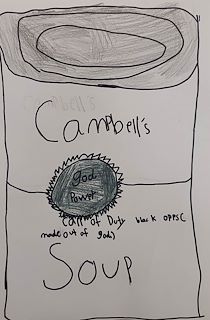 Campbell's
Campbell's
god
Power
Call of Duty black opps(
made out of god)
Soup